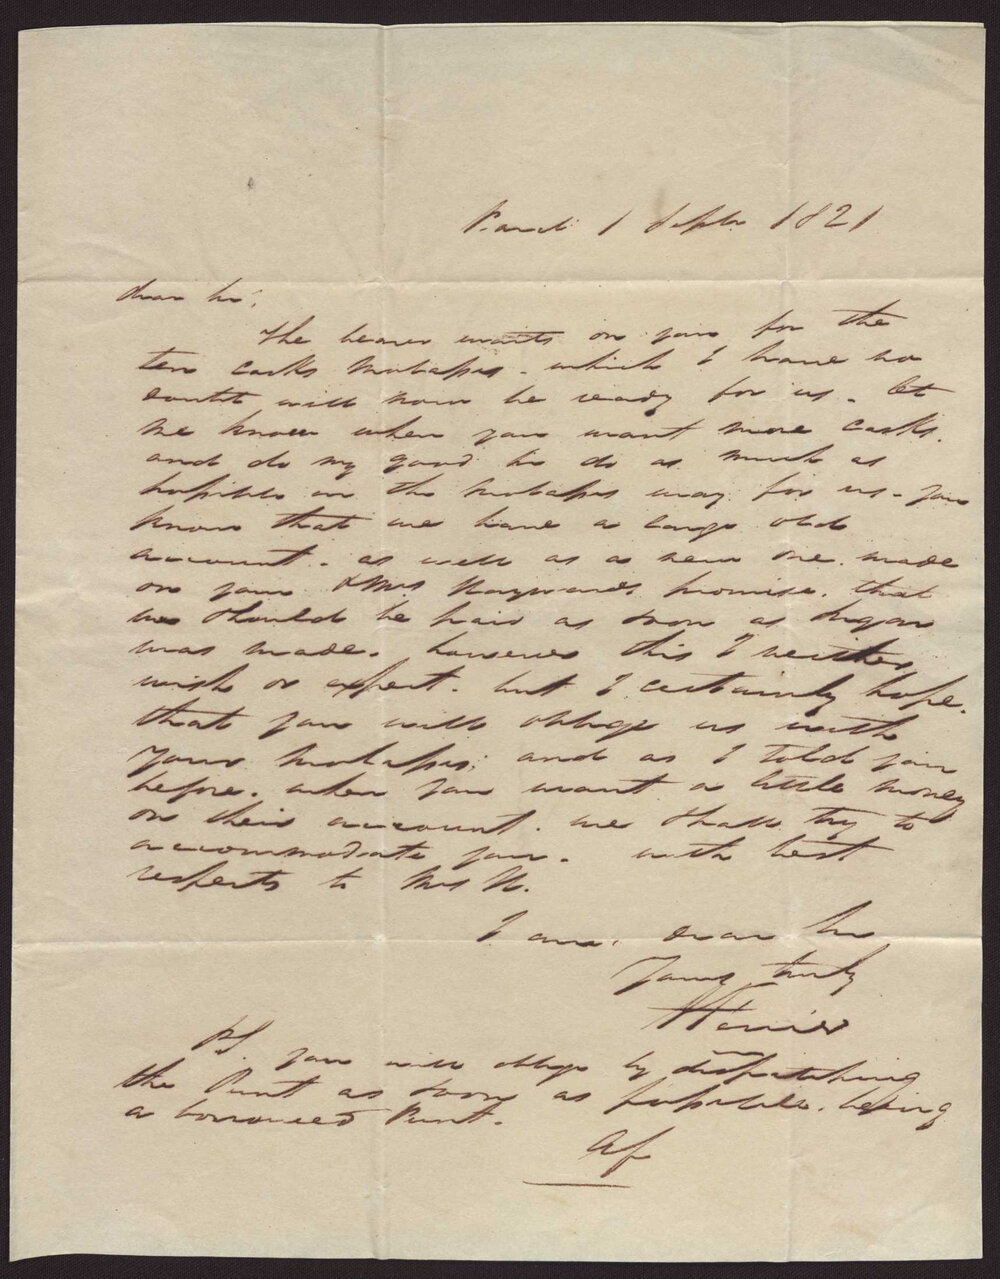 1 Septr 1821
dear Sir,
The bearer waits on you for the
ten casks Molasses - which I have no
doubt will now be ready for us - let
me know when you want more casks.
and do my good Sir do as much as
possible in the Molasses way for us - you
know that we have a large old
account - as well as a new one made
on your & Mrs promise. that
we should be paid as soon as Sugar
was made. however this I neither
wish or expect. but I certainly hope.
that you will obblige us with
your Molasses; and as I told you
before. when you want a little money
on their account. we shall try to
accommodate you - with best
respects to Mrs N.
I am, dear Sir
Yours truly
PS. you will oblige by dispatching
the Punt as soon as possible. being
a borrowed Punt.